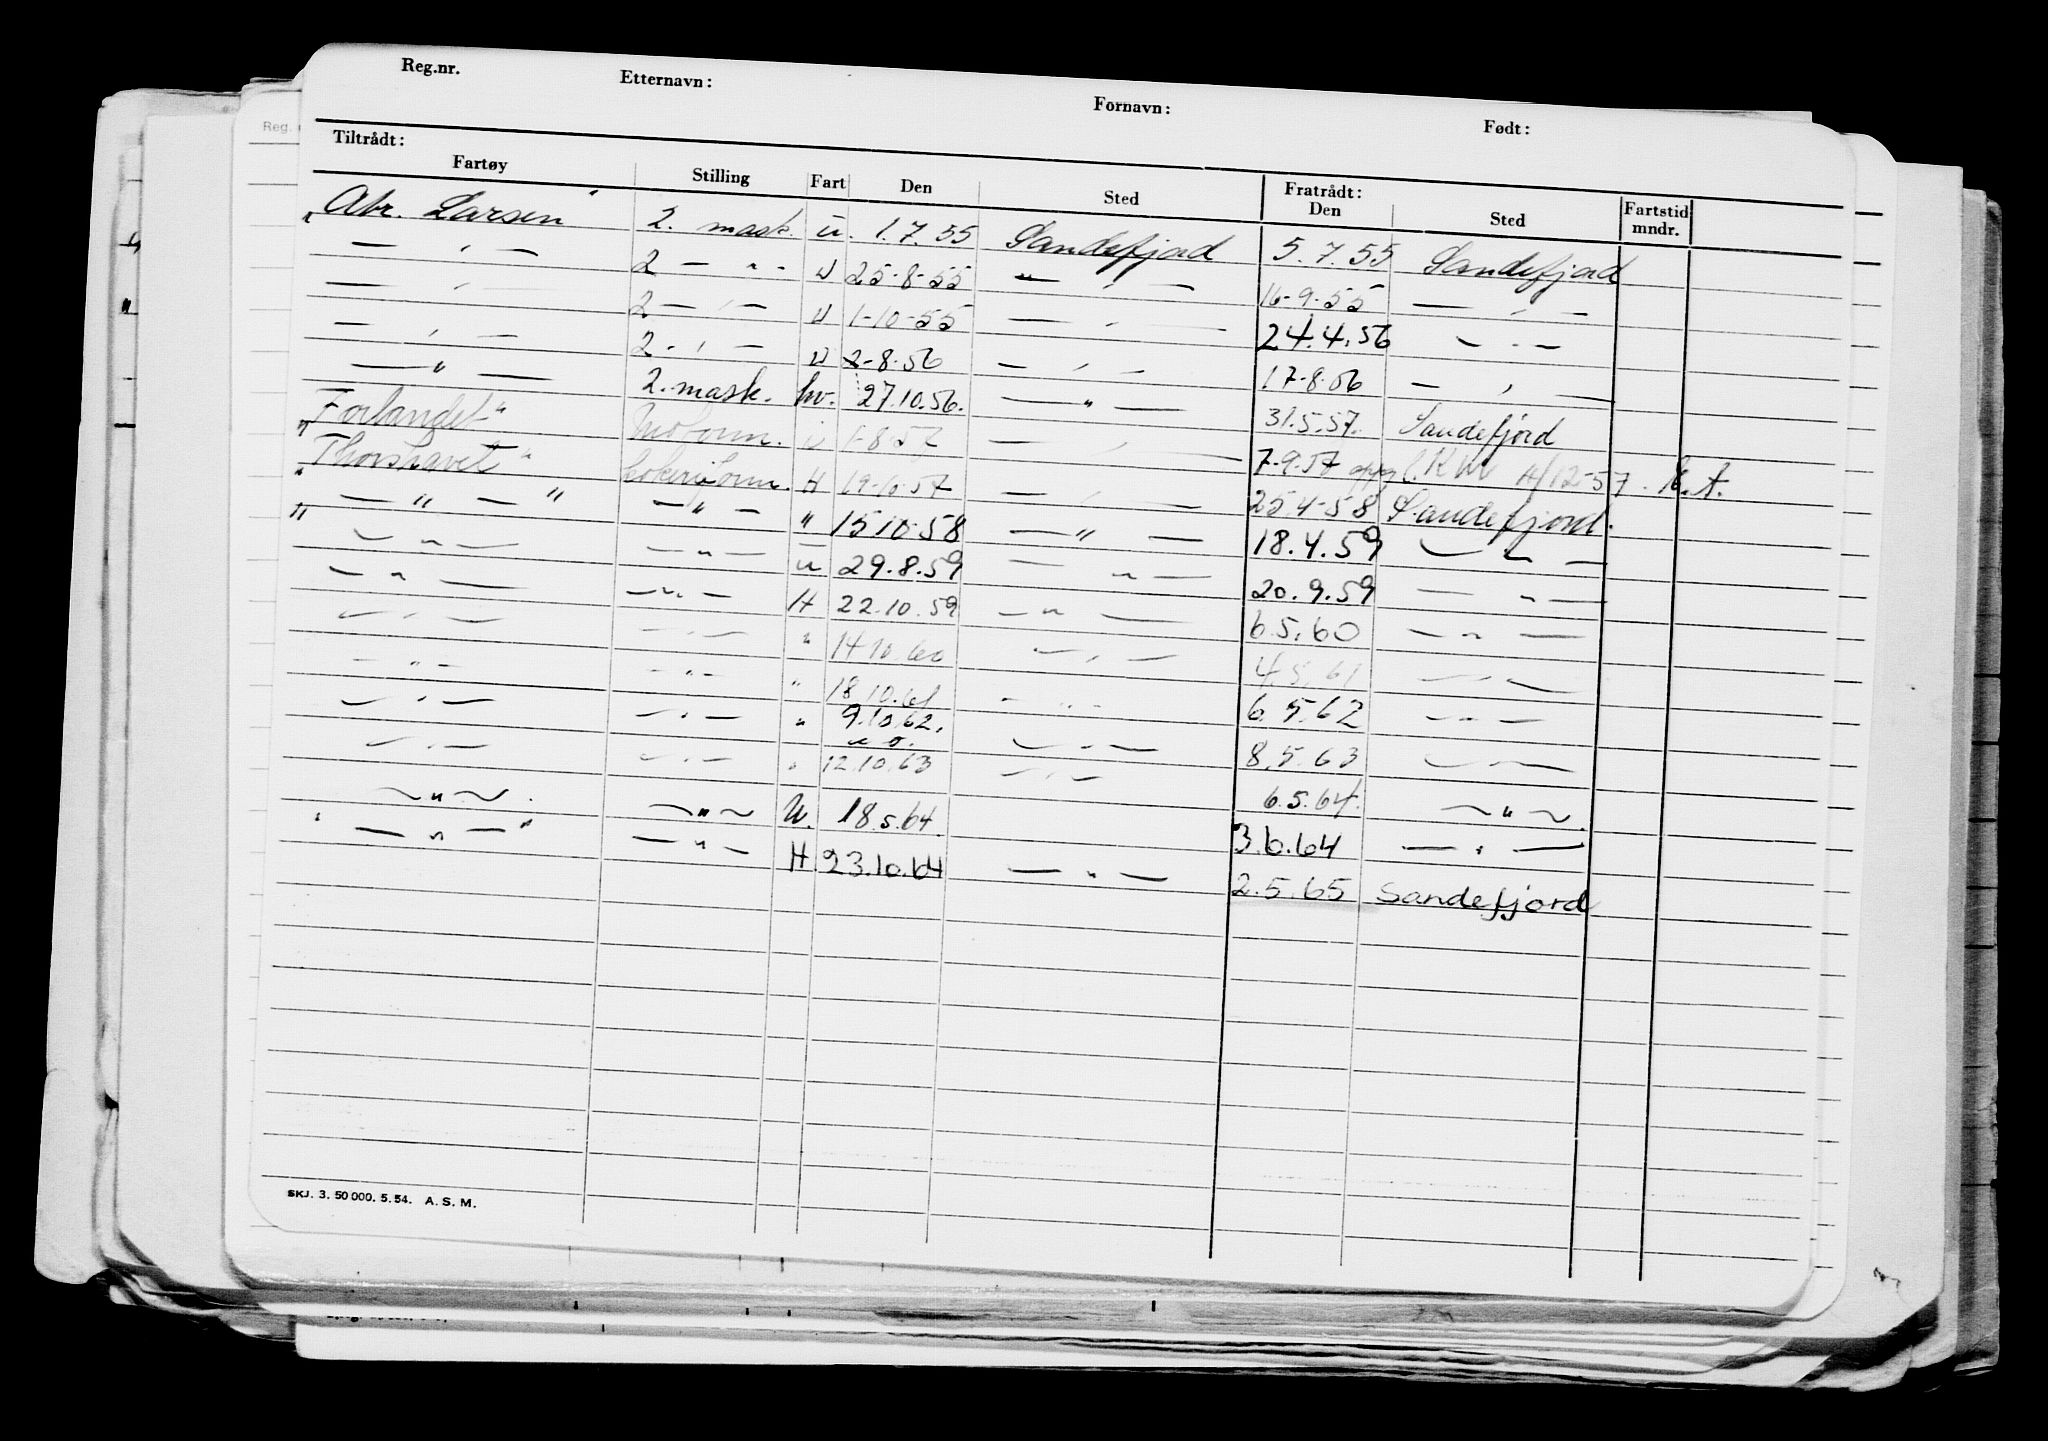 Reg.nr. Etternavn: Fornavn: Født:
Tiltrådt: Fratrådt:
Fartøy Stilling Fart Den Sted Den Sted Fartstid mndr.
"Abr. Larsen" 2. mask. u. 1.7.55 Sandefjord 5.7.55 Sandefjord
— " — 2 — " - u 25-8-55 — " — 16-9-55 — " —
— " — 2 — " — u 1-10-55 — " — 24.4.56 — " —
— " — 2 - " — u 2-8-56 — " — 17-8-56 — " —
— " — 2. mask. hv. 27.10.56. — " — 31.5.57. Sandefjord
"Forlandet" u 1-8-57 — " — 7-9-57 4/12-57. K.A.
"Thorshavet" kokeriform. H 19-10-57 — " — 25.4-58 Sandefjord.
" — " — " — " — " 15.10.58 — " — 18.4.59 — " —
" — " — — " — u 29.8.59 — " — 20.9.59 — " —
— " — — " — H 22.10.59 — " — 6.5.60 — " —
— " — — " — " 14.10.60 — " — 4.5.61 — " —
— " — — " — " 18.10.61 - " - 6.5.62 — " —
— " — — " — " 9.10.62. — " — 8.5.63 — " —
— " — — " — " 12.10.63 — " — 6.5.64. ~ " ~.
~ " ~. ~ " ~ U. 18.5.64. 3.6.64 — " —
" — " — " — " — H 23.10.64 — " — 2.5.65 Sandefjord
SKJ. 3. 50 000. 5. 54. A. S. M.
Reg.